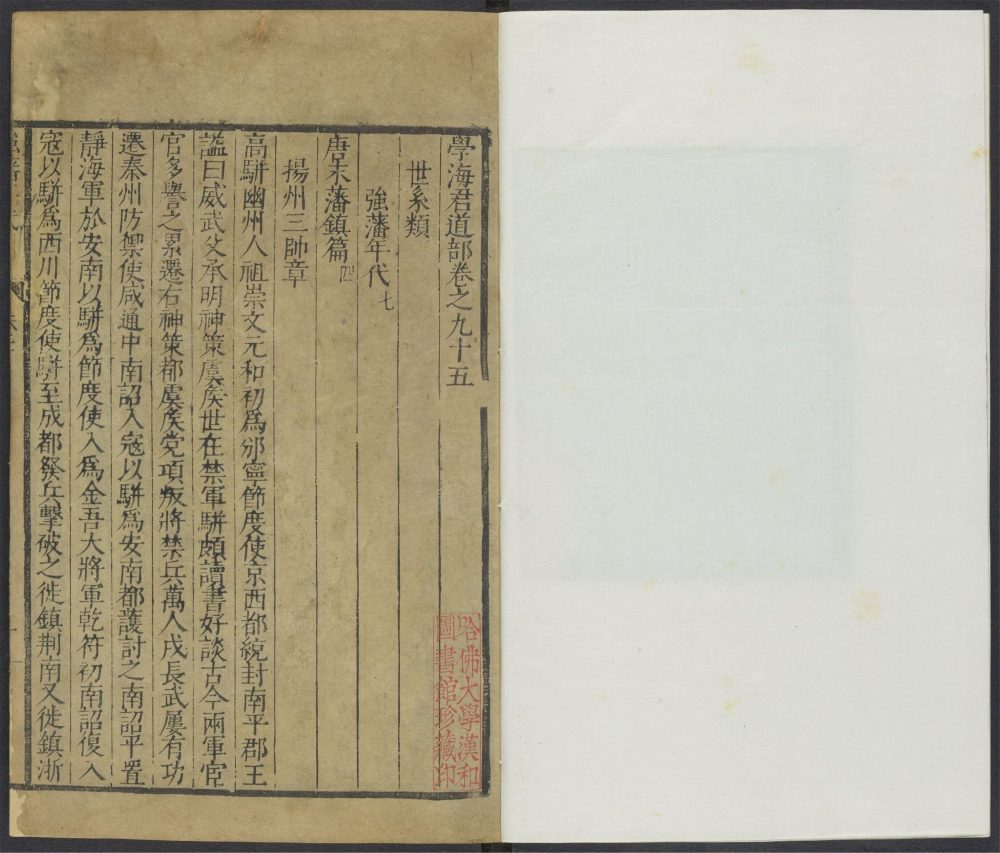 學海君道部卷之九十五
世系類
強藩年代七
唐末藩鎮篇四
揚州三帥章
高駢幽州人祖崇文元和初爲邠寧節度使京西都統封南平郡王
謚曰威武父承明神策虞矦世在禁軍駢頗讀書好談古今兩軍宦
官多譽之累遷右神策都虞矦党項叛將禁兵萬人戍長武屢有功
遷秦州防禦使咸通中南詔入寇以駢爲安南都護討之南詔平置
靜海軍於安南以駢爲節度使入爲金吾大將軍乾符初南詔復入
寇以駢爲西川節度使駢至成都發兵擊破之徙鎮荆南又徙鎮浙
哈佛大學漢和
圖書館珍藏印